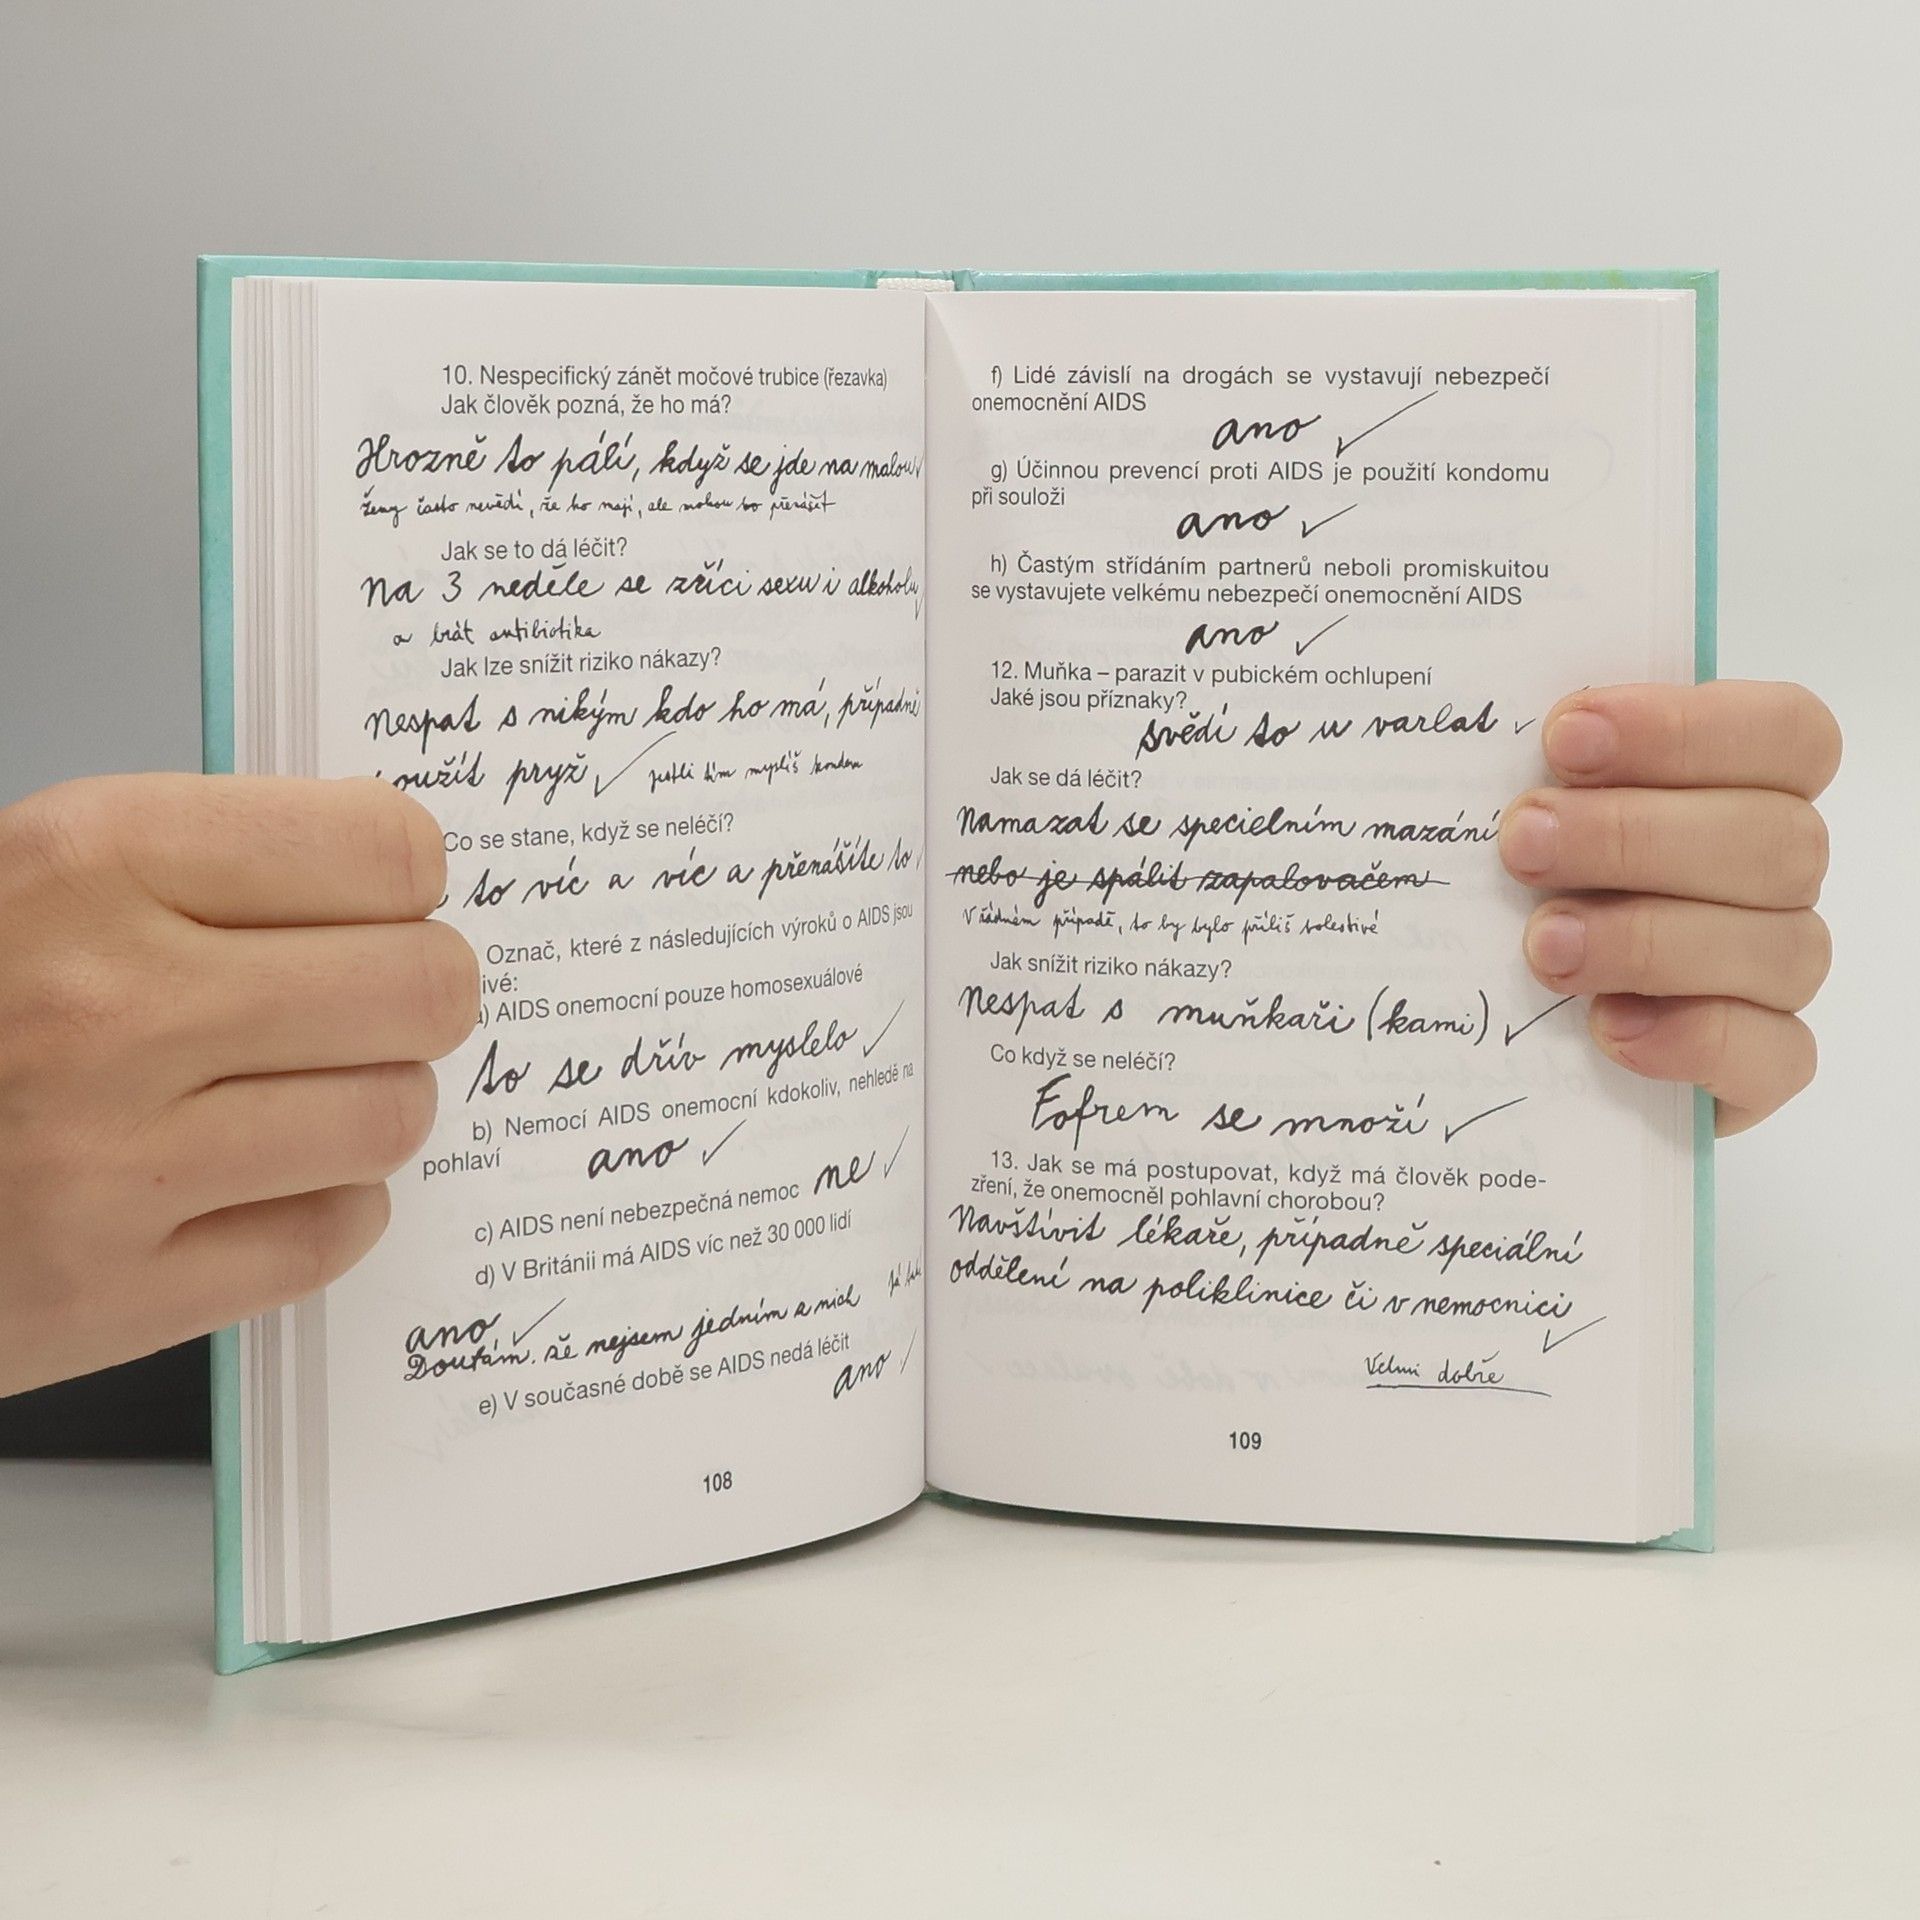 10. Nespecifický zánět močové trubice (řezavka)
Jak člověk pozná, že ho má?
Hrozně to pálí, když se jde na malou
ženy často nevědí, že ho mají, ale mohou ho přenášet
Jak se to dá léčit?
Na 3 neděle se zříci sexu i alkoholu
a brát antibiotika
Jak lze snížit riziko nákazy?
Nespat s nikým kdo ho má, případně
oužít pryž jestli tím myslíš kondom
Co se stane, když se neléčí?
to víc a víc a přenášíte to
Označ, které z následujících výroků o AIDS jsou
ivé:
a) AIDS onemocní pouze homosexuálové
to se dřív myslelo
b) Nemocí AIDS onemocní kdokoliv, nehledě na
pohlaví ano
c) AIDS není nebezpečná nemoc ne
d) V Británii má AIDS víc než 30 000 lidí
ano,
Doufám. že nejsem jedním z nich Já také
e) V současné době se AIDS nedá léčit
ano
108
f) Lidé závislí na drogách se vystavují nebezpečí
onemocnění AIDS
ano
g) Účinnou prevencí proti AIDS je použití kondomu
při souloži
ano
h) Častým střídáním partnerů neboli promiskuitou
se vystavujete velkému nebezpečí onemocnění AIDS
ano
12. Muňka – parazit v pubickém ochlupení
Jaké jsou příznaky?
svědí to u varlat
Jak se dá léčit?
Namazat se specielním mazání
nebo je spálit zapalovačem
V žádném případě, to by bylo příliš bolestivé
Jak snížit riziko nákazy?
Nespat s muňkaři (kami)
Co když se neléčí?
Fofrem se množí
13. Jak se má postupovat, když má člověk pode-
zření, že onemocněl pohlavní chorobou?
Navštívit lékaře, případně speciální
oddělení na poliklinice či v nemocnici
Velmi dobře
109